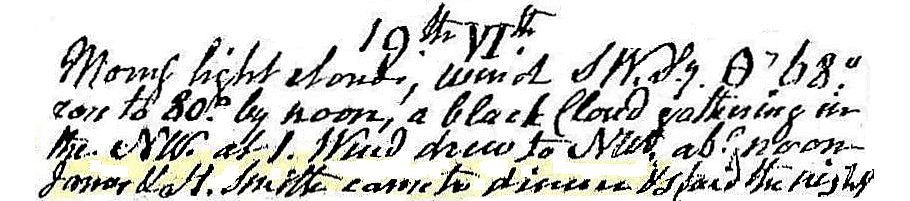 19th VIth
Morng light clouds, wind SW.ly. 68°
ros to 80° by noon, a black Cloud gathering in
the NW. at 1. Wind drew to NW, abt noon
James & H. Smith came to dinner & spend the night